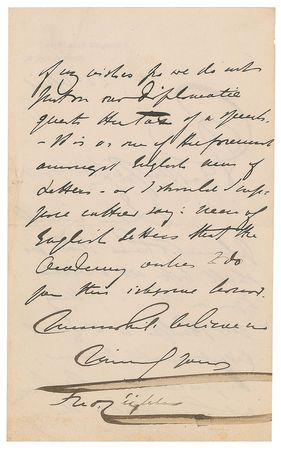 of my wishes for we do not
put on our diplomatic
guests the Tax of a speech.
- It is as one of the foremost
amongst English men of
Letters - or I should I sup-
pose rather say: men of
English Letters that the
Academy wishes to do
you this welcome honour.
believe me
yours